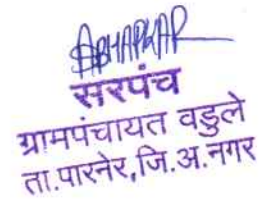 सरपंच
ग्रामपंचायत वडुले
ता.पारनेर,जि.अ.नगर